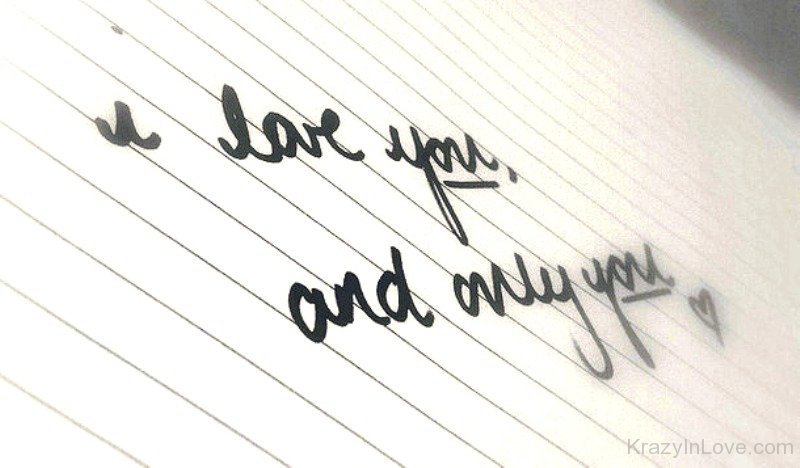 i love you,
and only you ♡
KrazyInLove.com